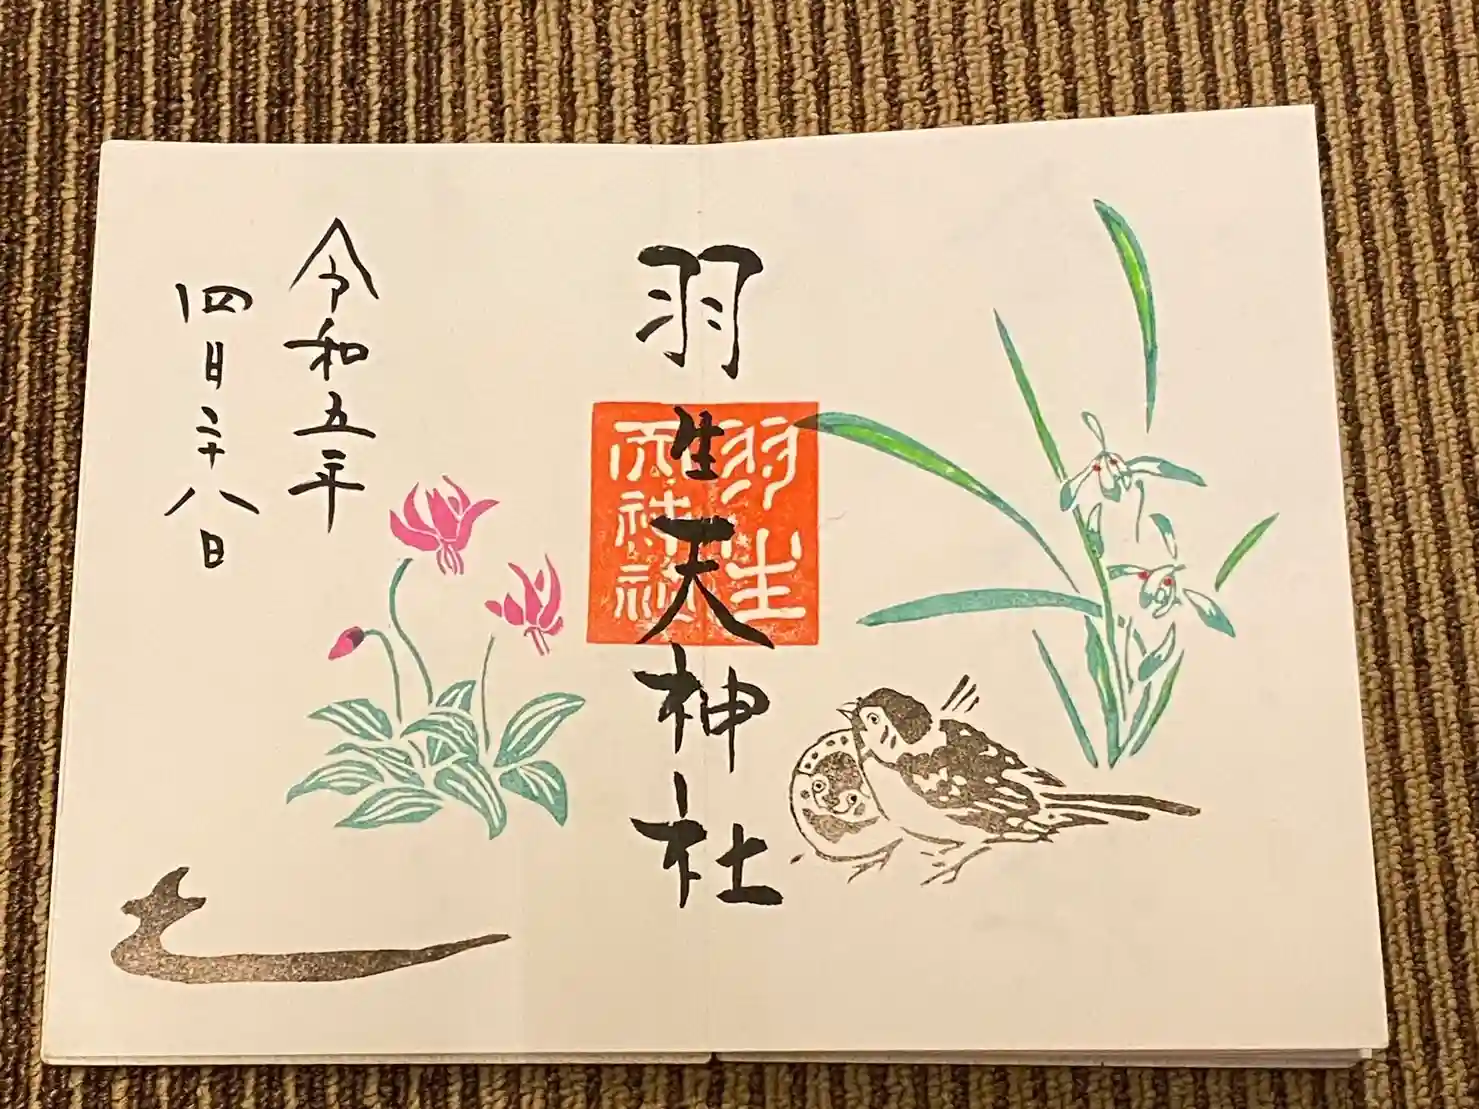 羽生天神社
羽生
天神社
令和五年
四月二十八日